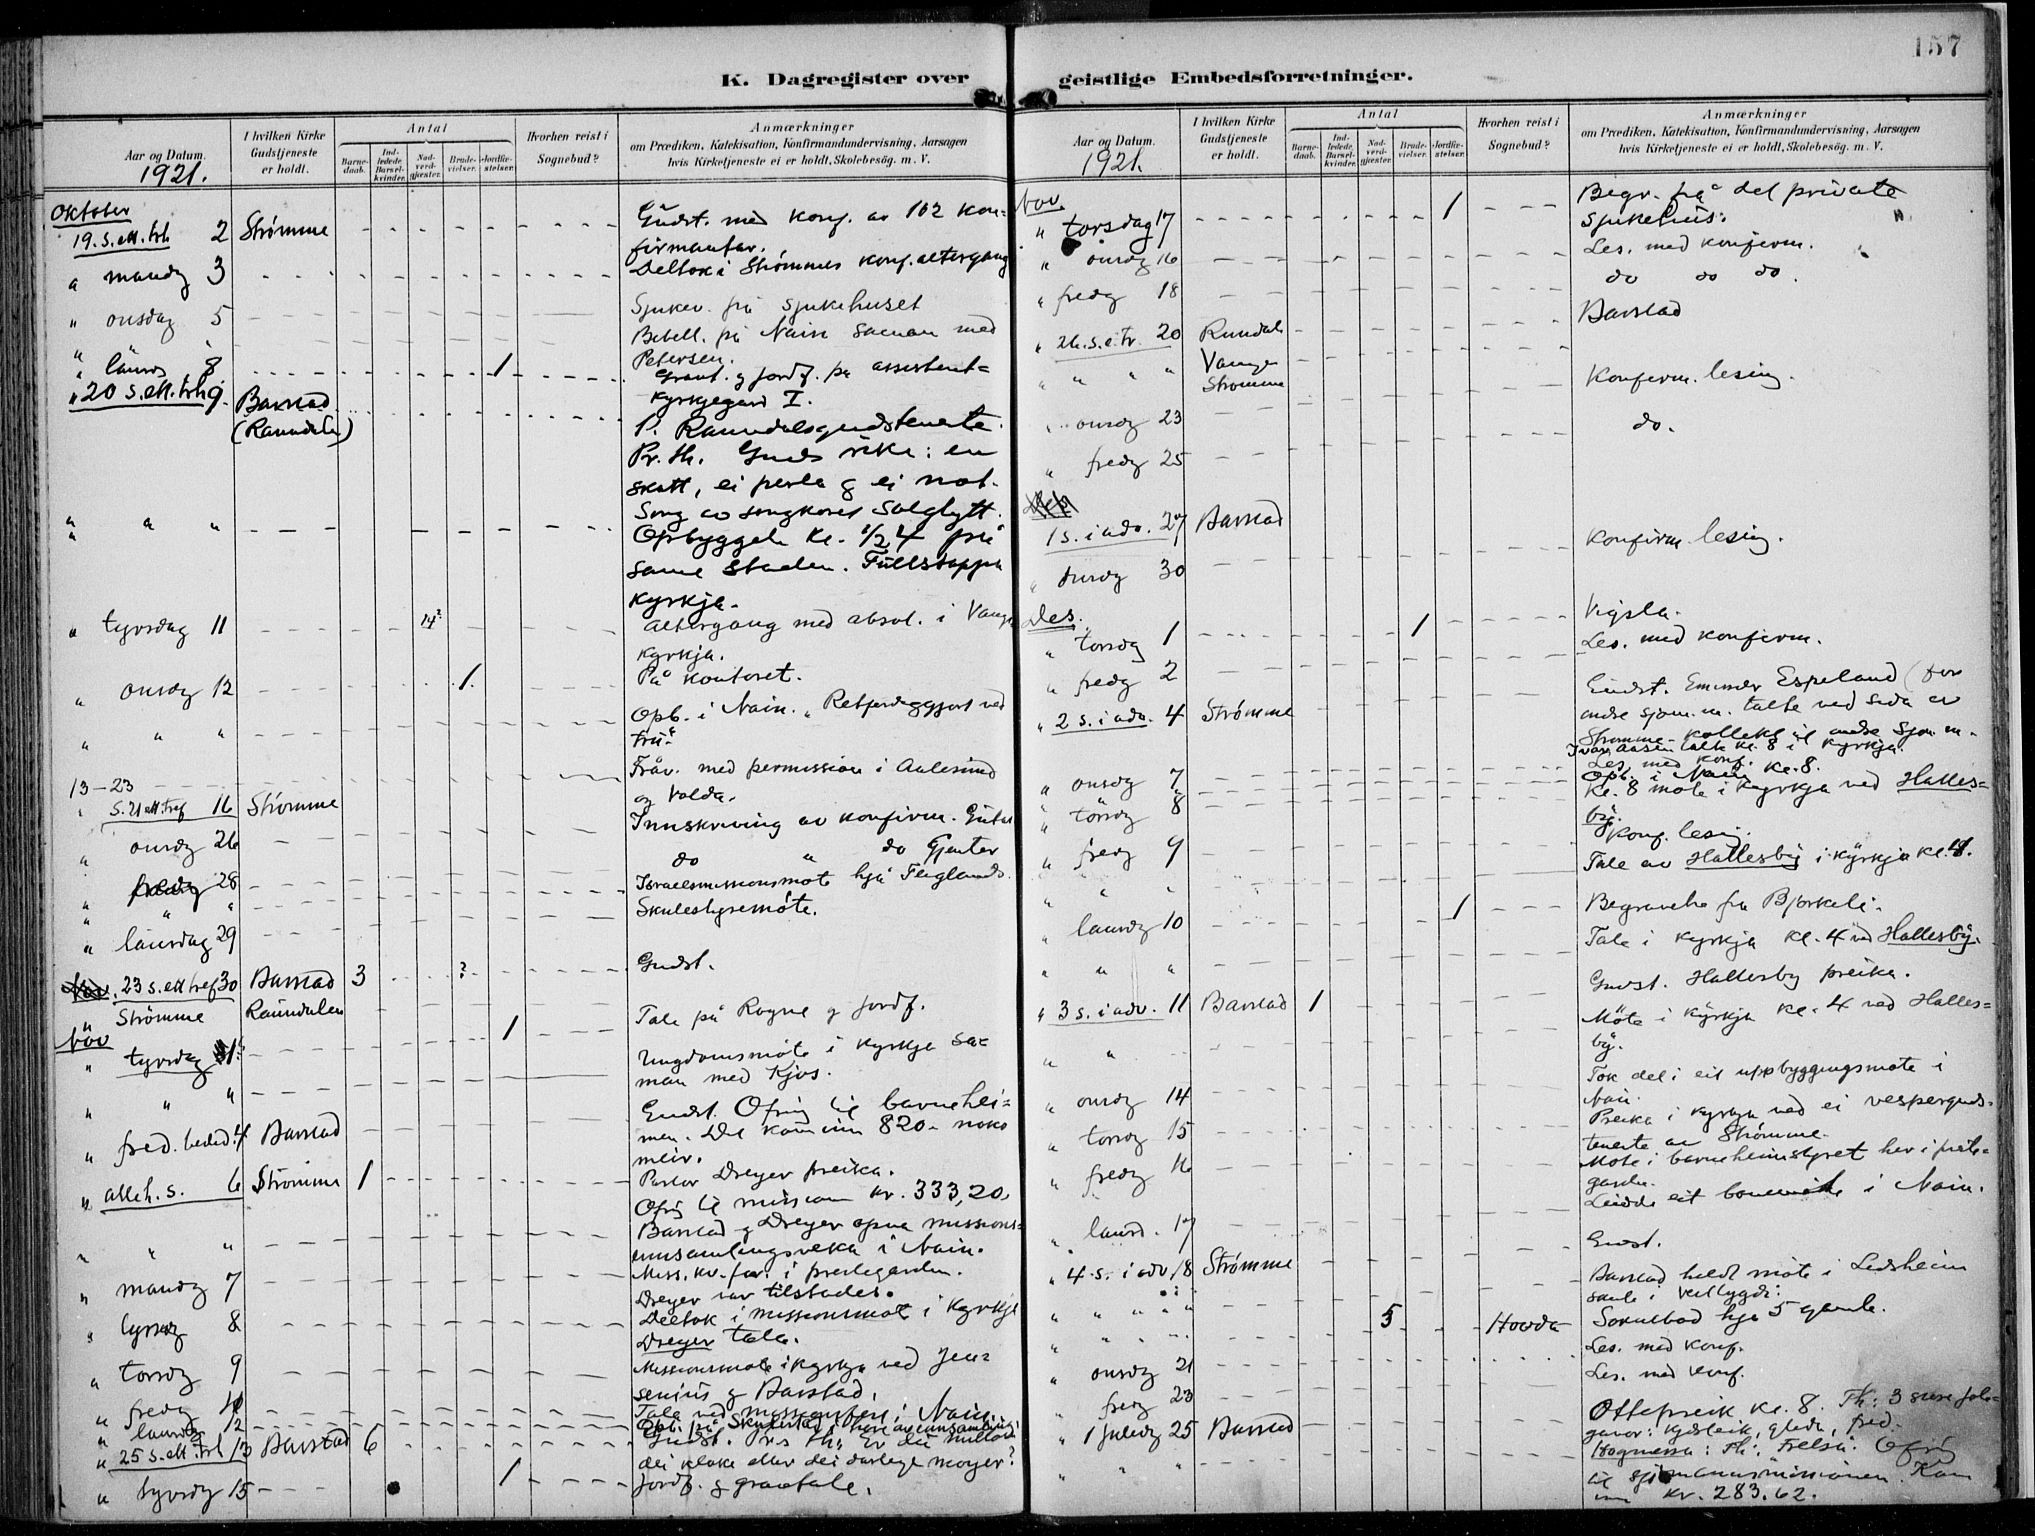 157
K. Dagregister over
geistlige Embedsforretninger.
Aar og Datum. 1921.
I hvilken Kirke Gudstjeneste er holdt.
Antal
Barnedaab. Indledede Barselkvinder. Nadverdgjester. Brudevielser. Jordfæstelser.
Hvorhen reist i Sognebud?
Anmærkninger
om Prædiken, Katekisation, Konfirmandundervisning, Aarsagen
hvis Kirketjeneste ei er holdt, Skolebesøg. m. V.
Oktober
19. s. ett. trh 2 Strømme Gudst. med konf. av 102 kon-
firmantar.
" mandg 3 Deltok i Strømmes konf. altergang
" onsdag 5 Sjukev. på sjukehuset
Bibell. på Nain saman med
Petersen.
" laurd 8 1 Gravt. og jordf. på assistent-
kyrkjegard I.
" 20 s. ett. trh 9. Barstad
(Raundalen) P. Raundalsgudsteneste.
Pr. th. Guds rike: en
skatt, ei perla og ei not.
Song av songkoret Solglytt.
" " " Opbyggels kl. 1/2 4 på
same staden. Fullstappa
kyrkja.
" tyrsdag 11 14 Altergang med absol. i Vangs
kyrkja.
" onsdg 12 1. På kontoret.
" " " Opb. i Nain. "Retferdiggjort ved
tru."
13-23 Fråv. med permission i Aalesund
og Volda.
" S. 21 ett. tref 16 Strømme
" onsdg 26 Innskriving av konfirm. Gutar
" fredg 28 do " do Gjenter
" " " Israelsmissionsmøte hjå Fleglands.
" laurdag 29 Skulestyremøte.
23 s. ett tref 30 Barstad 3 ? Gudst.
" Strømme Raundalen
Nov
" tyrsdag 1 1 Tale på Rogne og jordf.
" " " Ungdomsmøte i kyrkja sa-
man med Kjos.
" fred. beded. 4 Barstad Gudst. Ofring til barnehei-
men. Det kom inn 820.- noko
meir.
" alleh. s. 6 Strømme 1 Pastor Dreyer preika.
Ofring til mission kr. 333,20
" " " Barstad og Dreyer opna missions-
innsamlingsveka i Nain.
" mandg 7 Miss. kv. for. i prestegarden.
Dreyer var tilstades.
" tyrsdg 8 Deltok i missionsmøte i kyrkja
Dreyer tala.
" torsdg 9 Missionsmøte i kyrkja ved Jen-
senius og Barstad.
" fredg 11 Tale ved i Nain.
" laurdg 12 Opb. på
" 25 s. ett. trh 13 Barstad 6 Gudst. Pr. th: Er du millom
dei kloke eller dei dårlege møyer?
" tyrsdg 15 1 Jordf. og gravtale.
Aar og Datum. 1921.
I hvilken Kirke Gudstjeneste er holdt.
Antal
Barnedaab. Indledede Barselkvinder. Nadverdgjester. Brudevielser. Jordfæstelser.
Hvorhen reist i Sognebud?
Anmærkninger
om Prædiken, Katekisation, Konfirmandundervisning, Aarsagen
hvis Kirketjeneste ei er holdt, Skolebesög. m. V.
Nov.
" torsdag 17 1 Begr. frå det private
sjukehus.
" onsdg 16 Les. med konfirm.
" fredg 18 do do do.
" 26. s. e. tr. 20 Rundal Barstad
" " " " Vangen
Strømme
" onsdg 23 Konfirm. lesing.
" fredg 25 do.
1 s. i adv. 27 Barstad
" onsdg 30 Konfirm. lesing.
Des.
" torsdg 1 1 Vigsla.
" fredg 2 Les. med konfirm.
" 2 s. i adv. 4 Strømme Gudst. Espeland (for
indre sjøm. m. talte ved sida av
Strømme. Kollekt til indre sjøm. m.
Ivar Aasen talte kl. 8 i kyrkja.
" onsdg 7 Les. med konf.
Opb. i Nain kl. 8.
" torsdg 8 Kl. 8 møte i kyrkja ved Halles-
by.
" fredg 9 Konf. lesing.
" " " Tale av Hallesby i kyrkja kl. 4.
" laurdg 10 1 Begravelse frå Bjørkeli.
" " " Tale i kyrkja kl. 4 ved Hallesby.
" 3 s. i adv. 11 Barstad 1 Gudst. Hallesby preika.
" " Møte i kyrkja kl. 4 ved Halles-
by.
" onsdg 14 Tok del i eit uppbyggingsmøte i
Nain.
" torsdg 15 Preika i kyrkja ved ei vesperguds-
teneste av Strømme.
" fredg 16 Møte i barneheimstyret her i preste-
garden.
" laurd. 17 Leidde eit bønemøte i Nain.
" 4. s. i adv. 18 Strømme Gudst.
" " " " Barstad heldt møte i Ledsheim
skule i Vestbygdi.
" " " 5 Hovda Soknebod hjå 5 gamle.
" onsdg 21 Les. med konf.
" fredg 23 Les. med konf.
" 1 juledg 25 Barstad Ottepreik kl. 8. Th: 3 store jole-
gåvor: kjærleik, glede, fred.
" " " Høgmessa: Th: Frelsa. Ofring
til sjømannsmissionen. Kom
inn kr. 283.62.